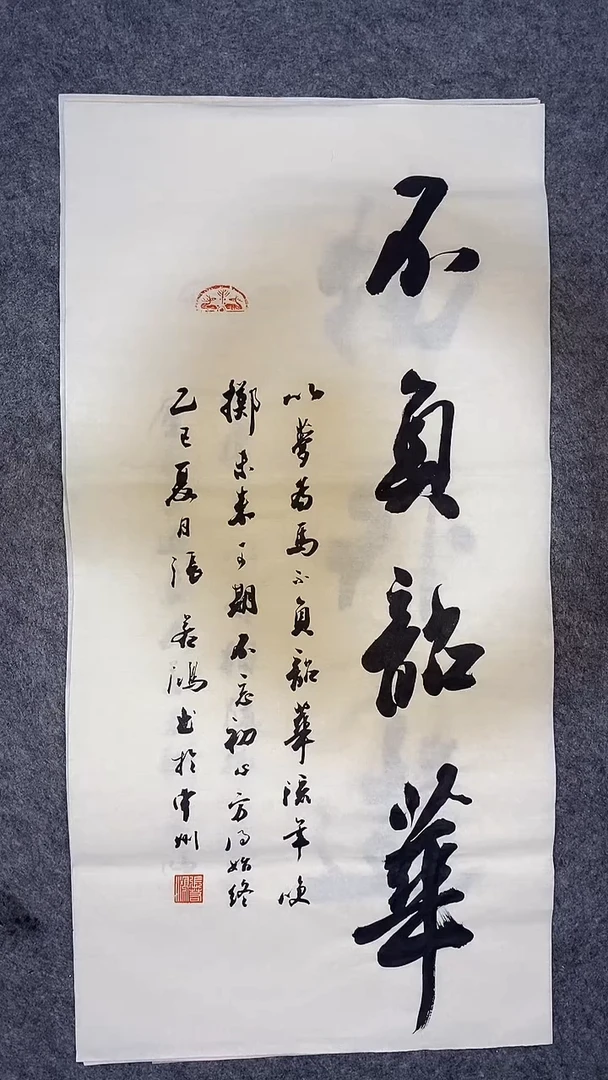 不負韶華
以夢為馬不負韶華流年笑
擲未來可期不忘初心方得始終
乙巳夏日張若鴻書於州